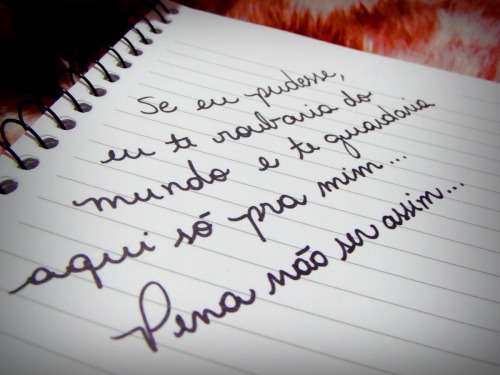 Se eu pudesse,
eu te roubaria do
mundo e te guardaria
aqui só pra mim...
Pena não ser assim...